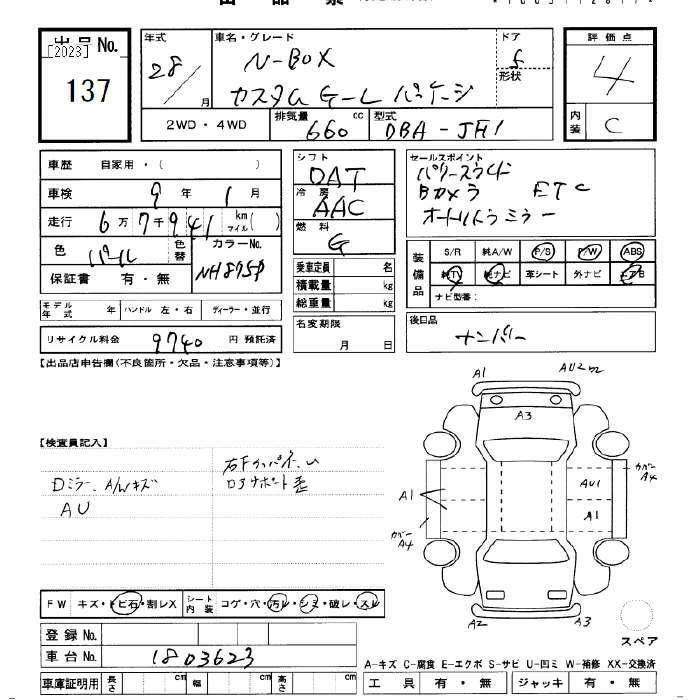 出品票
[2023]
出品 No.
137
年式 28/ 月
車名・グレード N-BOX
カスタム G-L パッケージ
ドア 5
形状
評価点 4
内装 C
2WD・4WD
排気量 660 cc
型式 DBA-JF1
車歴 自家用・( )
車検 9年 1月
走行 6万7千941 km マイル( )
色 パール
色替
カラーNo. NH875P
保証書 有・無
シフト DAT
冷房 AAC
燃料 G
乗車定員 名
積載量 kg
総重量 kg
セールスポイント
パワースライド
Bカメラ ETC
オートリトラミラー
装備品 S/R 純A/W P/S P/W ABS
純TV 純ナビ 革シート 外ナビ エアB
ナビ型番：
モデル年式 年 ハンドル 左・右 ディーラー・並行
リサイクル料金 9740 円 預託済
名変期限 月 日
後日品 ナンバー
【出品店申告欄(不良箇所・欠品・注意事項等)】
【検査員記入】
Dミラー、A/Wキズ
AU
A1
AU2
A3
A1
AU1
A1
カバー A4
カバー A4
A2
A3
スペア
FW キズ・トビ石・割レX
シート内装 コゲ・穴・汚レ・シミ・破レ・スレ
登録 No.
車台 No. 1803623
車庫証明用 長さ cm 幅 cm 高さ cm
A-キズ C-腐食 E-エクボ S-サビ U-凹ミ W-補修 XX-交換済
工具 有・無 ジャッキ 有・無